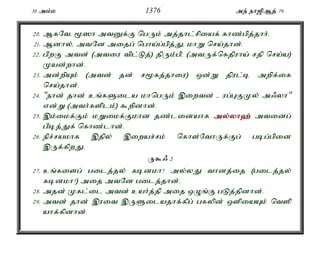 30 அம்ம 1376 அந் நாஜிஆத் 79
20. ஆகவே, மூஸா அவனுக்கு பெரும் அத்தாட்சியைக் காண்பித்தார்.
21. ஆனால், அவனோ அதைப் பொய்ப்பித்து, மாறு செய்தான்.
22. பிறகு அவன் (அவரை விட்டுத்) திரும்பி, (அவருக்கெதிராய் சதி செய்ய) முயன்றான்.
23. அன்றியும் (அவன் தன் சமூகத்தாரை) ஒன்று திரட்டி அறிக்கை செய்தான்.
24. "நான் தான் உங்களுடைய மாபெரும் இறைவன் - ரப்புகுமுல் அஃலா" என்று (அவர்களிடம்) கூறினான்.
25. இம்மைக்கும் மறுமைக்குமான தண்டனையாக அல்லாஹ் அவனைப் பிடித்துக் கொண்டான்.
26. நிச்சயமாக இதில் இறையச்சம் கொள்வோருக்குப் படிப்பினை இருக்கிறது.
ருகூஃ 2
27. உங்களைப் படைத்தல் கடினமா? அல்லது வானத்தை (படைத்தல் கடினமா?) அதை அவனே படைத்தான்.
28. அதன் முகட்டை அவன் உயர்த்தி அதை ஒழுங்கு படுத்தினான்.
29. அவன் தான் இரவை இருளுடையதாக்கிப் பகலின் ஒளியையும் வெளி யாக்கினான்.